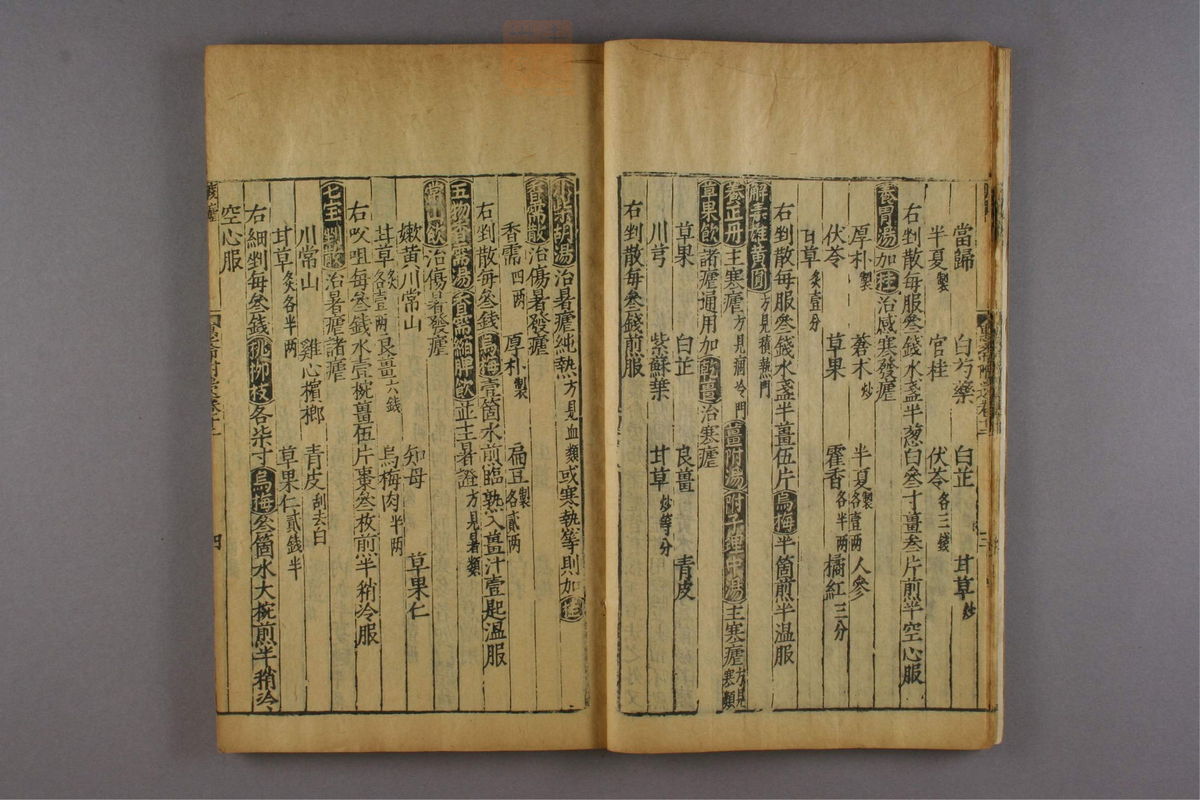 當歸 白芍藥 白芷 甘草炒
半夏製 官桂 伏苓各三錢
右剉散每服叄錢水盞半葱白叄寸薑叄片煎半空心服
養胃湯加桂治感寒發瘧
厚朴製 蒼木炒 半夏製各壹兩 人參
伏苓 草果 霍香各半兩 橘紅三分
甘草炙壹分
右剉散每服叄錢水盞半薑伍片烏梅半箇煎半温服
解毒雄黃圓方見積熱門
養正丹主寒瘧方見痼冷門薑附湯附子理中湯主寒瘧方見寒類
草果飲諸瘧通用加乾薑治寒瘧
草果 白芷 良薑 青皮
川芎 紫蘇葉 甘草炒等分
右剉散每叄錢煎服
小柴胡湯治暑瘧純熱方見血類或寒熱等則加桂
香薷散治傷暑發瘧
香薷四兩 厚朴製 扁豆製各貳兩
右剉散每叄錢烏梅壹箇水煎臨熟入薑汁壹匙温服
五物香薷湯香薷縮脾飲並主暑證方見暑類
常山飲治傷暑發瘧
嫩黃川常山 知母 草果仁
甘草炙各壹兩 良薑六錢 烏梅肉半兩
右㕮咀每叄錢水壹椀薑伍片棗叄枚煎半稍冷服
七宝剉散治暑瘧諸瘧
川常山 雞心檳榔 青皮刮去白
甘草炙各半兩 草果仁貳錢半
右細剉每叄錢桃柳枝各柒寸烏梅叄箇水大椀煎半稍冷
空心服
四